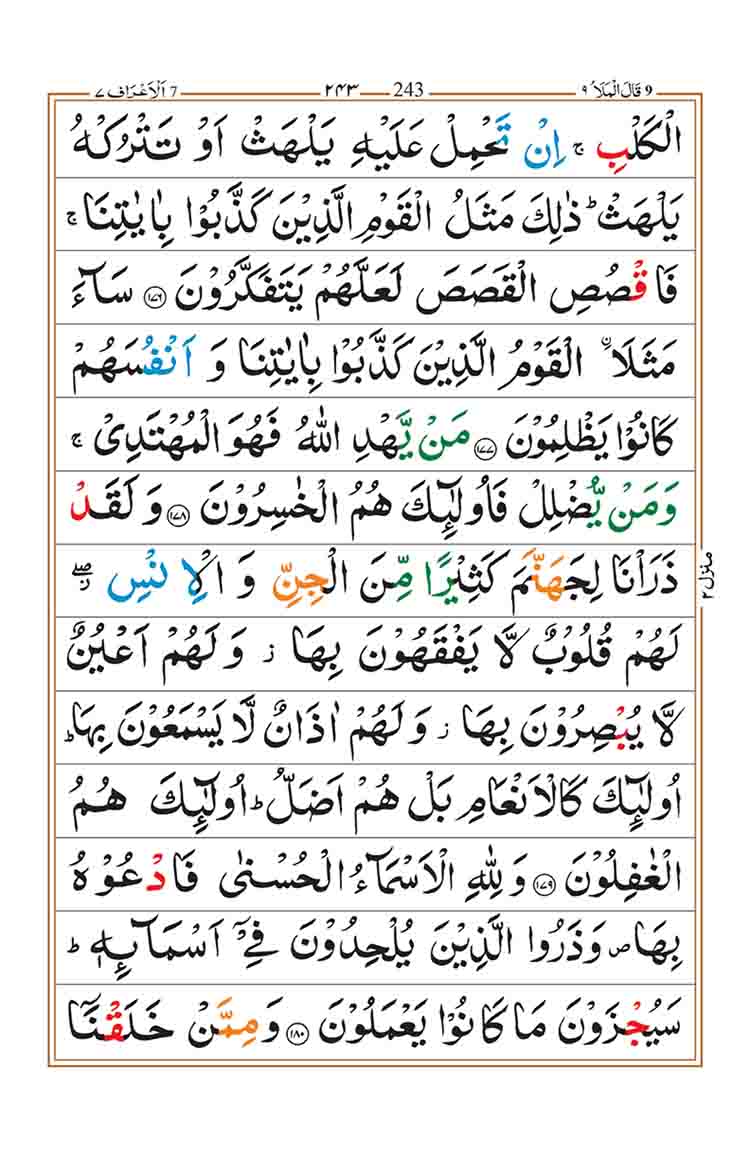 9 قَالَ الْمَلَاُ ٩ 243 ٢٤٣ 7 اَلْاَعْرَاف ٧
الْكَلْبِ ۚ اِنْ تَحْمِلْ عَلَيْهِ يَلْهَثْ اَوْ تَتْرُكْهُ
يَلْهَثْ ؕ ذٰلِكَ مَثَلُ الْقَوْمِ الَّذِيْنَ كَذَّبُوْا بِاٰيٰتِنَا ۚ
فَاقْصُصِ الْقَصَصَ لَعَلَّهُمْ يَتَفَكَّرُوْنَ ۝١٧٦ سَآءَ
مَثَلَا ۨ الْقَوْمُ الَّذِيْنَ كَذَّبُوْا بِاٰيٰتِنَا وَ اَنْفُسَهُمْ
كَانُوْا يَظْلِمُوْنَ ۝١٧٧ مَنْ يَّهْدِ اللّٰهُ فَهُوَ الْمُهْتَدِيْ ۚ
وَمَنْ يُّضْلِلْ فَاُولٰٓئِكَ هُمُ الْخٰسِرُوْنَ ۝١٧٨ وَ لَقَدْ
ذَرَاْنَا لِجَهَنَّمَ كَثِيْرًا مِّنَ الْجِنِّ وَ الْاِنْسِ ۖ
لَهُمْ قُلُوْبٌ لَّا يَفْقَهُوْنَ بِهَا ز وَ لَهُمْ اَعْيُنٌ
لَّا يُبْصِرُوْنَ بِهَا ز وَ لَهُمْ اٰذَانٌ لَّا يَسْمَعُوْنَ بِهَا ؕ
اُولٰٓئِكَ كَالْاَنْعَامِ بَلْ هُمْ اَضَلُّ ؕ اُولٰٓئِكَ هُمُ
الْغٰفِلُوْنَ ۝١٧٩ وَ لِلّٰهِ الْاَسْمَآءُ الْحُسْنٰى فَادْعُوْهُ
بِهَا ص وَ ذَرُوا الَّذِيْنَ يُلْحِدُوْنَ فِيْٓ اَسْمَآئِهٖ ؕ
سَيُجْزَوْنَ مَا كَانُوْا يَعْمَلُوْنَ ۝١٨٠ وَ مِمَّنْ خَلَقْنَآ
منزل ٢